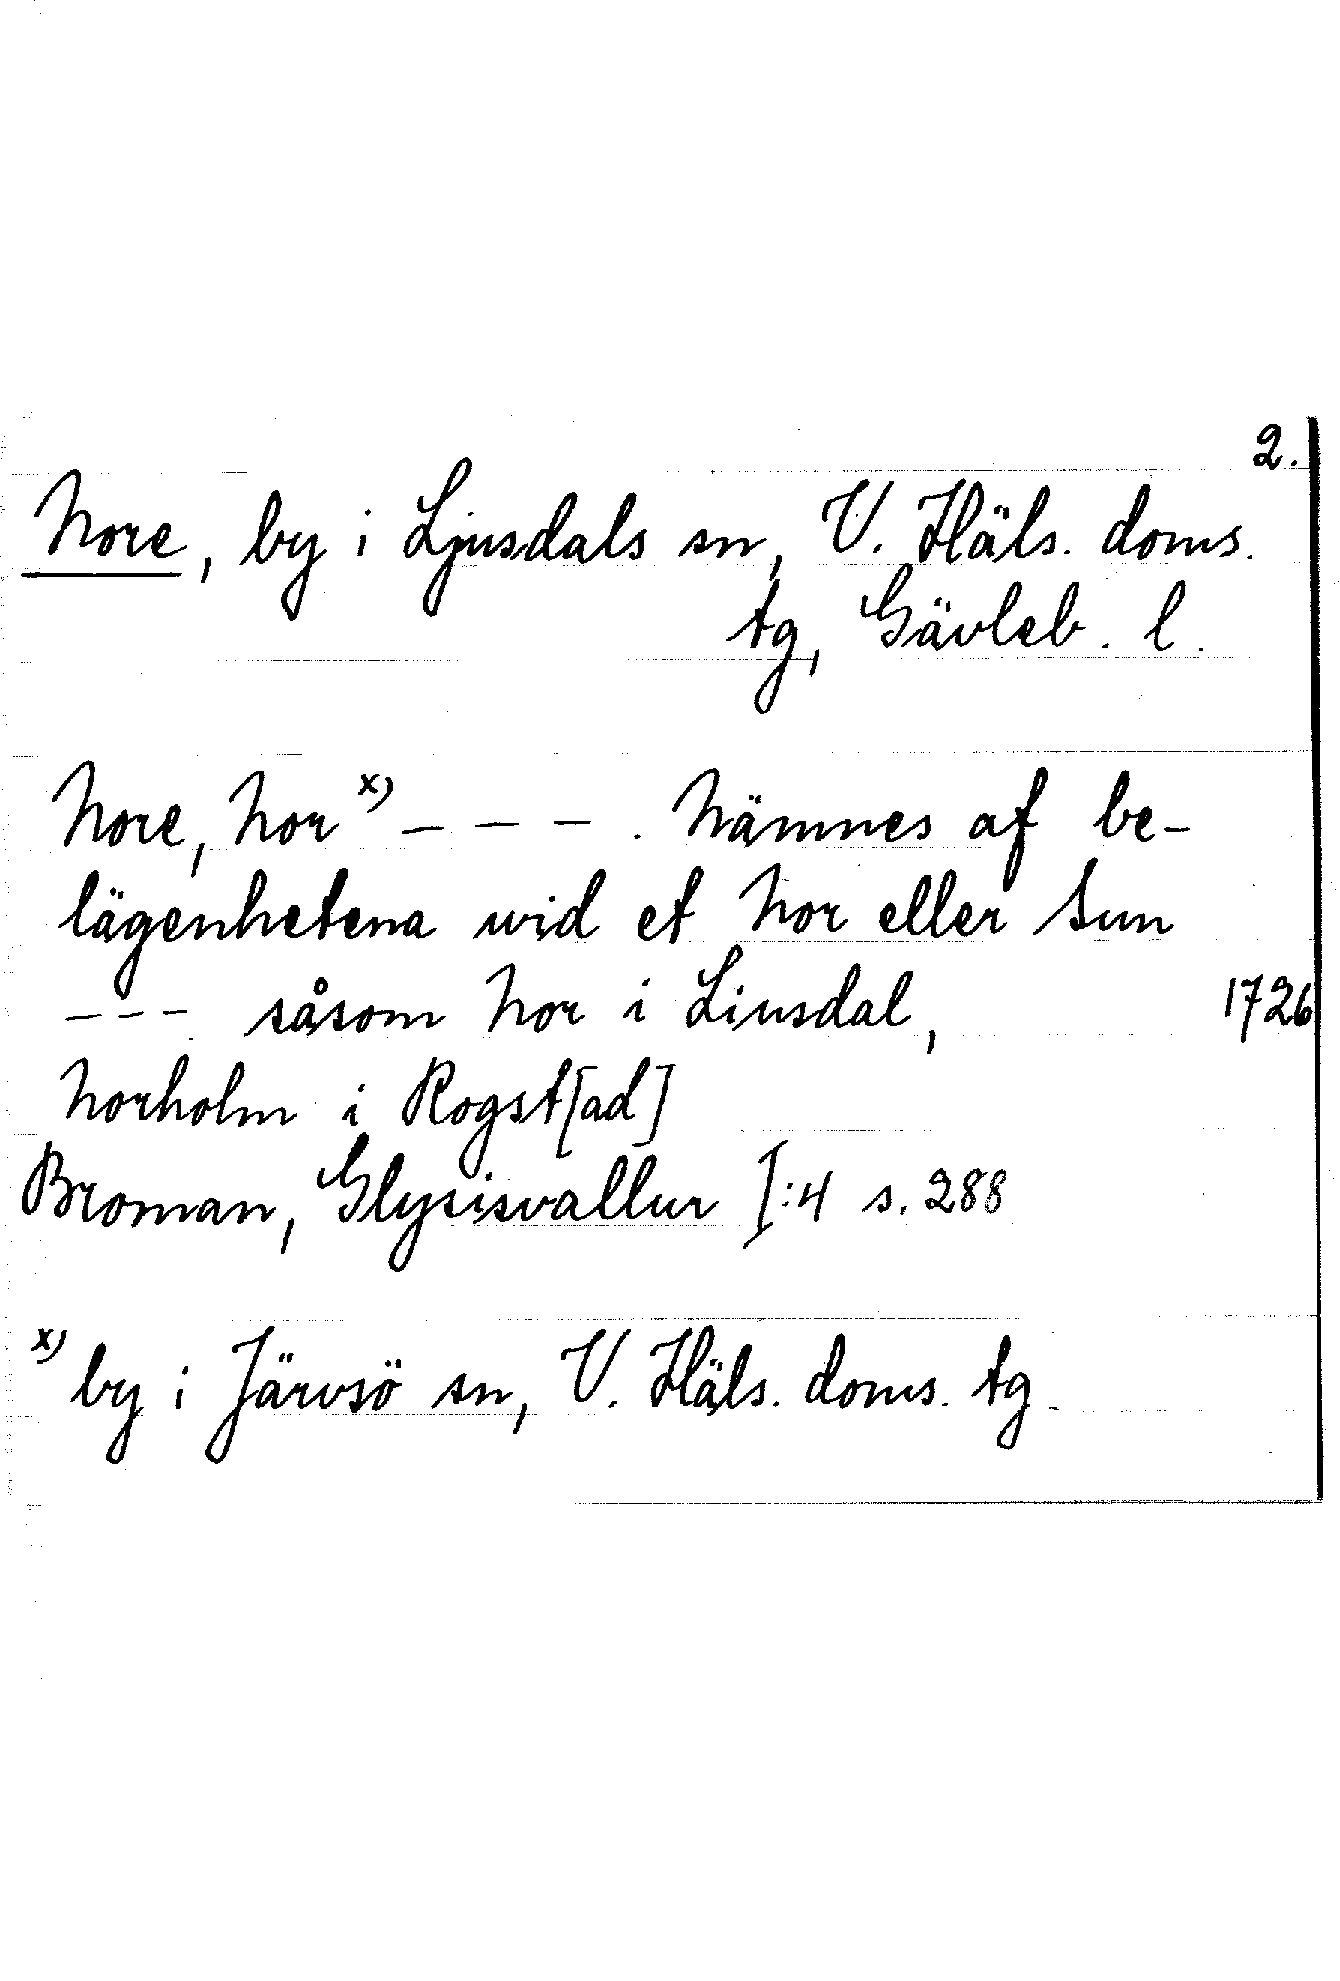 2.
Nore, by i Ljusdals sn, V. Häls. doms.
tg, Gävleb. l.
Nore, Nor x) - - - . Nämnes af be-
lägenhetena wid et Nor eller Sun
- - - såsom Nor i Liusdal, 1726
Norholm i Rogst[ad]
Broman, Glysisvallur I:4 s. 288
x) by i Järvsö sn, V. Häls. doms. tg